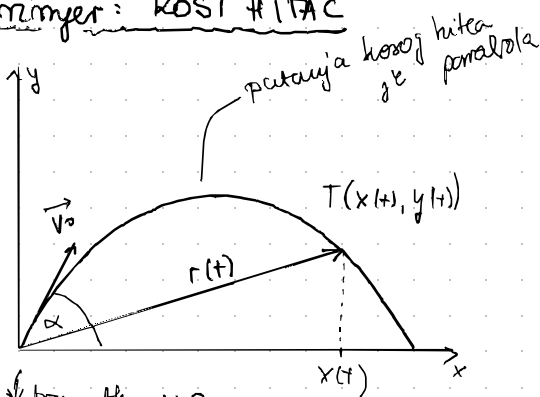 KOSI HITAC
putanja kosog hitca
je parabola
y
T(x(t), y(t))
V₀
r(t)
α
x(t)
x